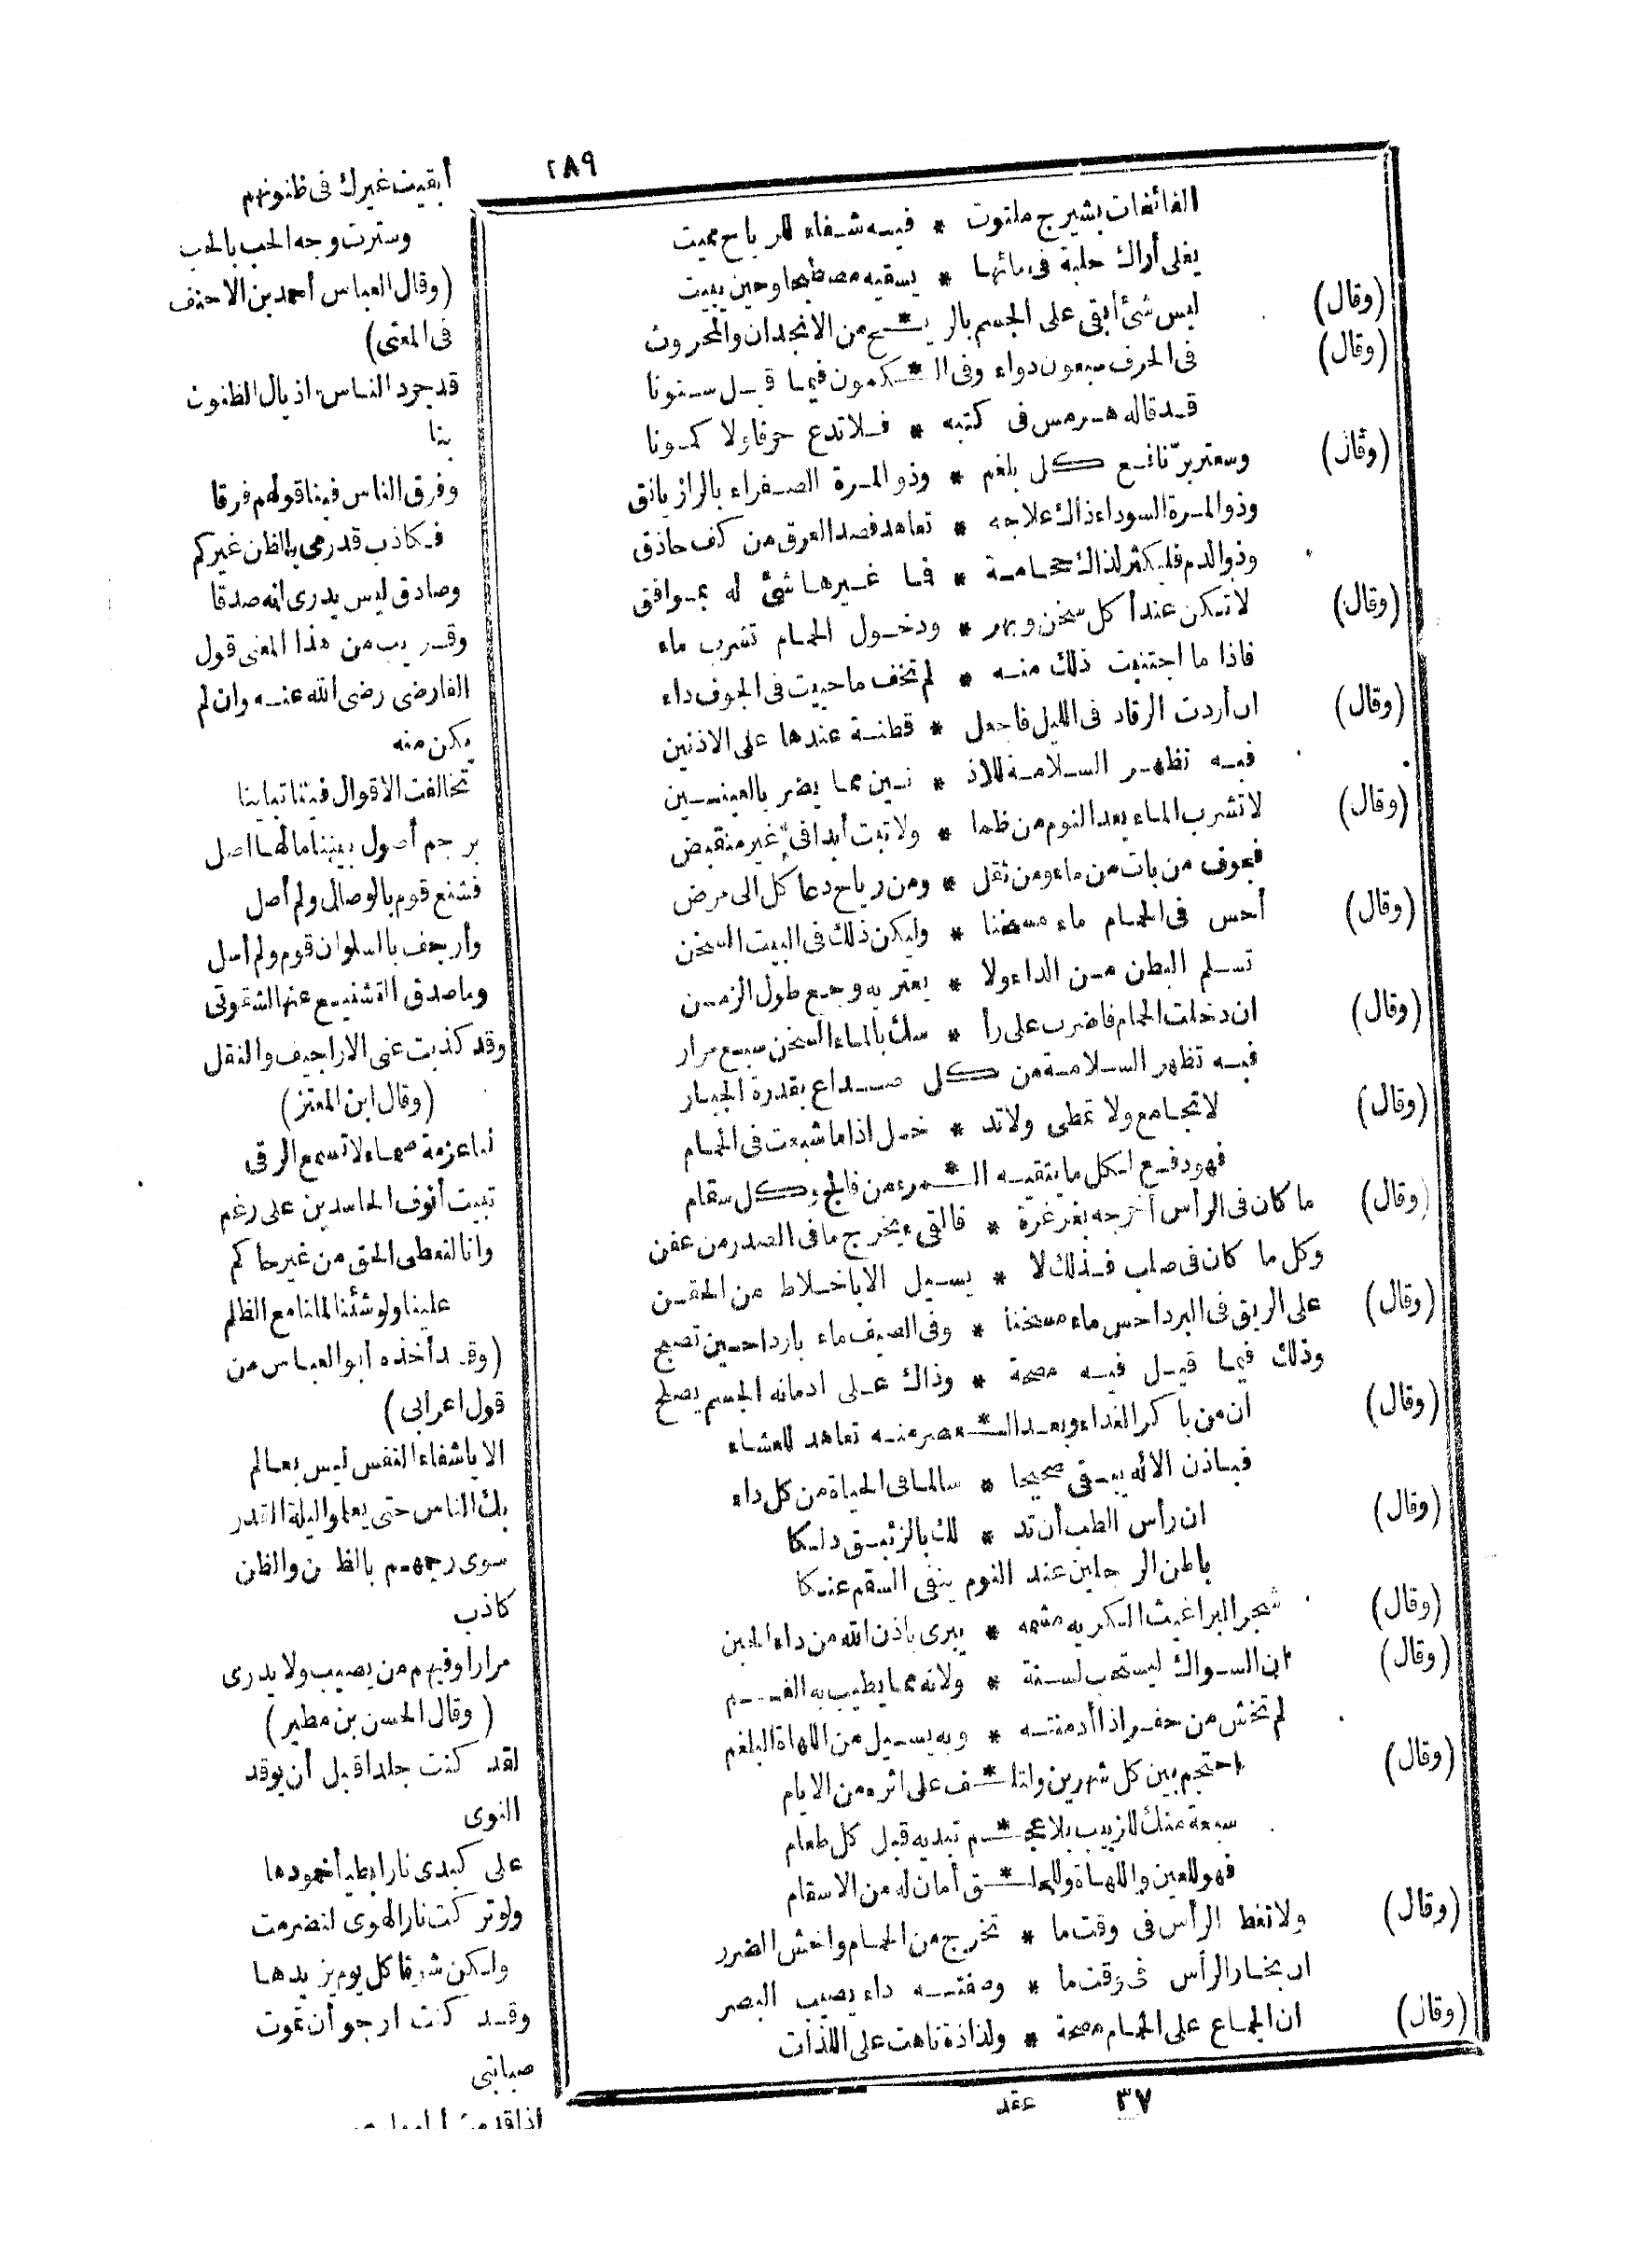 ٢٨٩
الفائغات بشيرج ملتوت * فيه شفاء للرياح مميت
يغلى أراك حلبة فى مائها * يسقيه مصطبحا وحين يبيت
(وقال) ليس شئ أبقى على الجسم بالر يـ * ـح من الانجدان والمحروث
(وقال) فى الحرف سبعون دواء وفى الـ * ـكمون فيما قيل ستونا
قد قاله هرمس فى كتبه * فلا تدع حرفا ولا كمونا
(وقال) وسعتر برّ نافع كل بلغم * وذو المرة الصفراء بالراز يانق
وذو المرة السوداء ذاك علاجه * تعاهد فصد العرق من كف حاذق
وذو الدم فليكثر لذاك حجامة * فما غيرها شئ له بموافق
(وقال) لا تكن عند أكل سخن وبرد * ودخول الحمام تشرب ماء
فاذا ما اجتنبت ذلك منه * لم تخف ما حييت فى الجوف داء
(وقال) ان أردت الرقاد فى الليل فاجعل * قطنة عندها على الاذنين
فيه تظهر السلامة للاذ * نين مما يضر بالعينين
(وقال) لا تشرب الماء بعد النوم من ظما * ولا تبت أبدا فى غير منقبض
فجوف من بات من ماء ومن ثقل * ومن رياح دعا كل الى مرض
(وقال) أحس فى الحمام ماء مسخنا * وليكن ذلك فى البيت السخن
تسلم البطن من الداء ولا * يعتريه وجع طول الزمن
(وقال) ان دخلت الحمام فاضرب على رأ * سك بالماء السخن سبع مرار
فيه تظهر السلامة من كل صداع بقدرة الجبار
(وقال) لا تجامع ولا تمطى ولا تد * خل اذا ما شبعت فى الحمام
فهو دفع لكل ما يتقيه الـ * ـمرء من فالج وكل سقام
(وقال) ما كان فى الرأس أخرجه بغرغرة * فالقىء يخرج ما فى الصدر من عفن
وكل ما كان فى صلب فذلك لا * يسيل الا باخلاط من الحقن
(وقال) على الريق فى البرد احس ماء مسخنا * وفى الصيف ماء باردا حين تصبح
وذلك فيما قيل فيه مصحة * وذاك على ادمانه الجسم يصلح
(وقال) ان من باكر الغداء وبعد الـ * ـعصر منه تعاهد للعشاء
فباذن الاله يبقى صحيحا * سالما فى الحياة من كل داء
(وقال) ان رأس الطب أن تد * لك بالزئبق دلكا
باطن الرجلين عند النوم ينفى السقم عنكا
(وقال) شجر البراغيث الكريه مشمه * يبرى باذن الله من داء الجبن
(وقال) ان السواك ليستحب لسنة * ولانه مما يطيب به الفم
لم تخش من حفر اذا أدمنته * وبه يسيل من اللهاة البلغم
(وقال) احتجم بين كل شهرين والتـ * ـف على اثره من الايام
سبعة منك للزبيب بلا عجـ * ـم تبديه قبل كل طعام
فهو للعين واللهاة وللحلـ * ـق أمان له من الاسقام
(وقال) ولا تغط الرأس فى وقت ما * تخرج من الحمام واخش الضرر
ان بخار الرأس فى وقت ما * وصفته داء يصيب البصر
(وقال) ان الجماع على الحمام مصحة * ولذاذة تاهت على اللذات
٣٧ عقد
أبقيت غيرك فى ظنونهم
وسترت وجه الحب بالحب
(وقال العباس أحمد بن الاحنف
فى المعنى)
قد جرد الناس اذيال الظنون
بنا
وفرق الناس فينا قولهم فرقا
فكاذب قد رمى بالظن غيركم
وصادق ليس يدرى انه صدقا
وقريب من هذا المعنى قول
الفارضى رضى الله عنه وان لم
يكن منه
تخالفت الاقوال فينا تباينا
برجم أصول بيننا ما لها اصل
فشنع قوم بالوصال ولم أصل
وأرجف بالسلوان قوم ولم أسل
وما صدق التشنيع عنها لشقوتى
وقد كذبت عنى الاراجيف والنقل
(وقال ابن المعتز)
لنا عزمة صماء لا تسمع الرقى
تبيت أنوف الحاسدين على رغم
وانا لنعطى الحق من غير حاكم
علينا ولو شئنا لملنا مع الظلم
(وقد أخذه أبو العباس من
قول اعرابى)
الا يا شفاء النفس ليس بعالم
بك الناس حتى يعلموا ليلة القدر
سوى رجمهم بالظن والظن
كاذب
مرارا وفيهم من يصيب ولا يدرى
(وقال الحسن بن مطير)
لقد كنت جلدا قبل أن يوقد
النوى
على كبدى نارا بطيأ خمودها
ولو تركت نار الهوى لتضرمت
ولكن شوقا كل يوم يزيدها
وقد كنت ارجو أن تموت
صبابتى